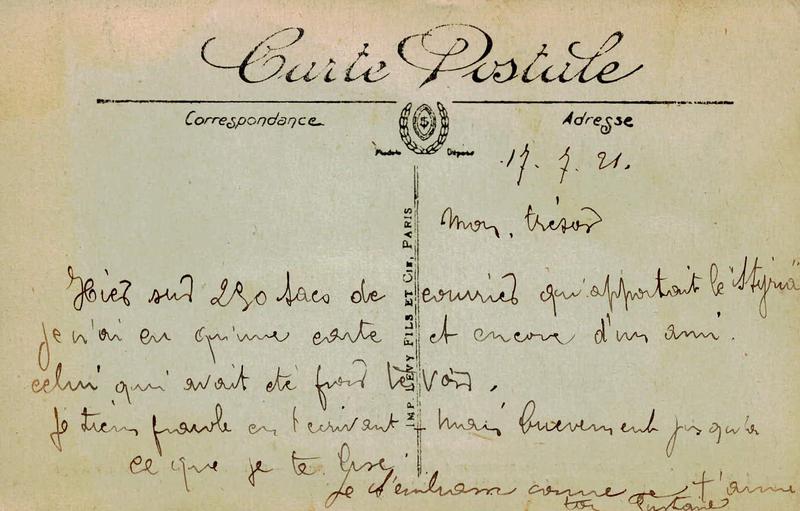 Carte Postale
Correspondance
Adresse
Modèle Déposé
IMP. LÉVY FILS ET CIE, PARIS
17. 7. 21.
Mon trésor
Hier sur 230 sacs de courrier qu'apportait le "Styria"
je n'ai eu qu'une carte et encore d'un ami.
celui qui avait été pour te voir.
Je tiens parole en t'écrivant - mais brièvement jusqu'à
ce que je te lise.
Je t'embrasse comme je t'aime
ton Gustave